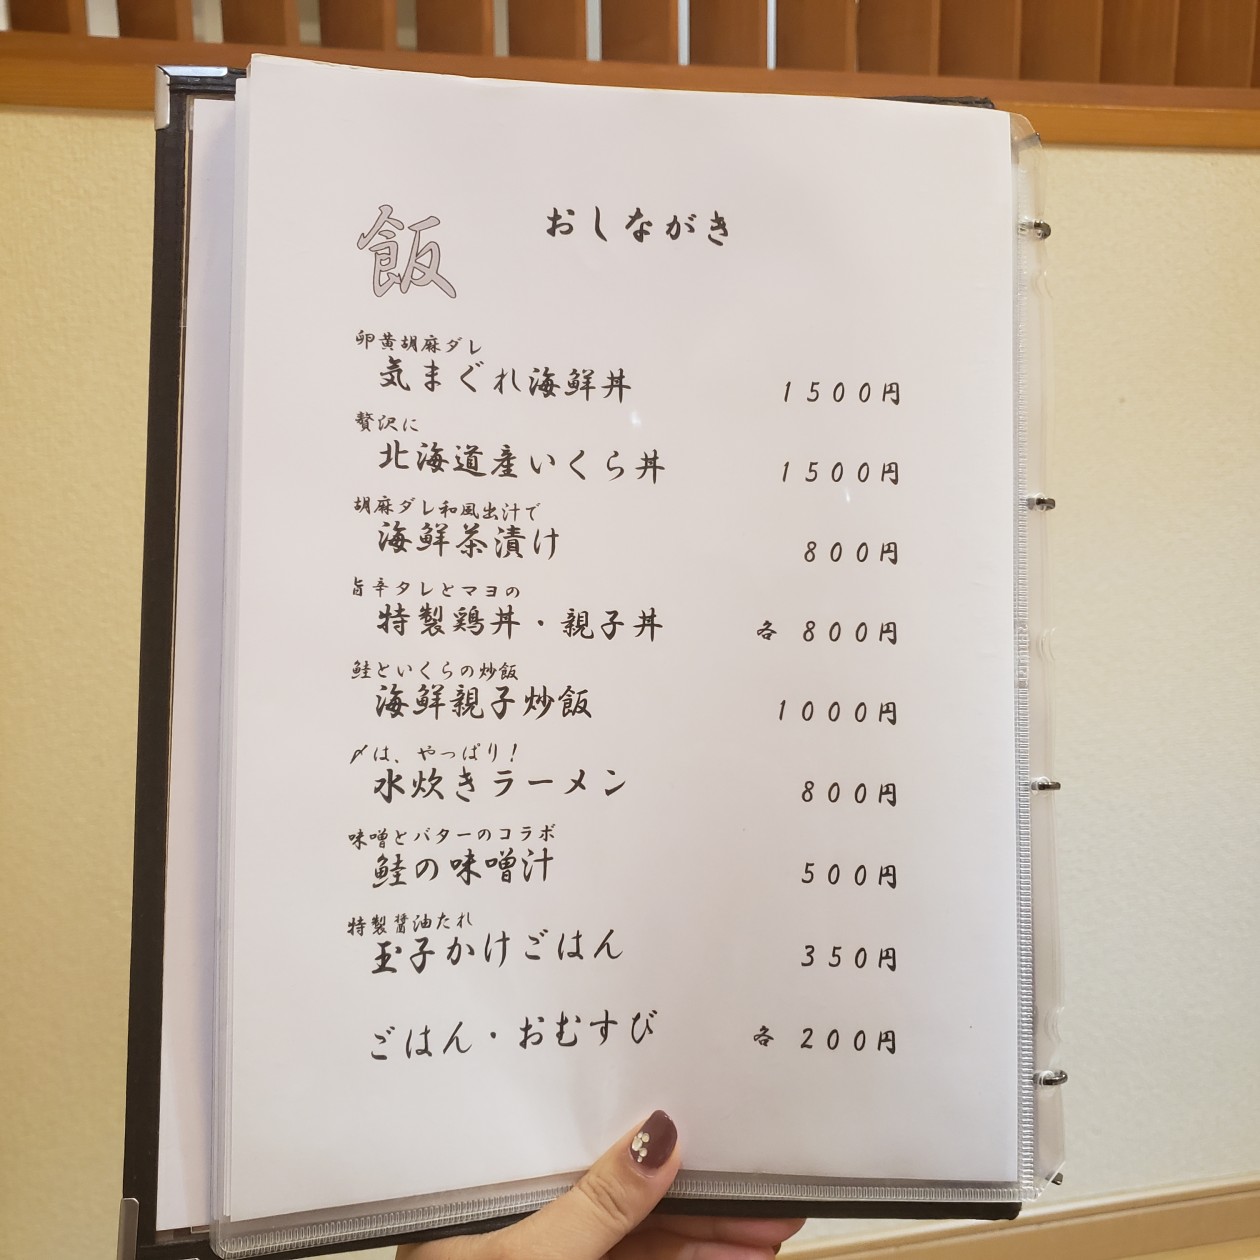 飯
おしながき
卵黄胡麻ダレ
気まぐれ海鮮丼 1500円
贅沢に
北海道産いくら丼 1500円
胡麻ダレ和風出汁で
海鮮茶漬け 800円
旨辛タレとマヨの
特製鶏丼・親子丼 各 800円
鮭といくらの炒飯
海鮮親子炒飯 1000円
〆は、やっぱり!
水炊きラーメン 800円
味噌とバターのコラボ
鮭の味噌汁 500円
特製醤油たれ
玉子かけごはん 350円
ごはん・おむすび 各 200円